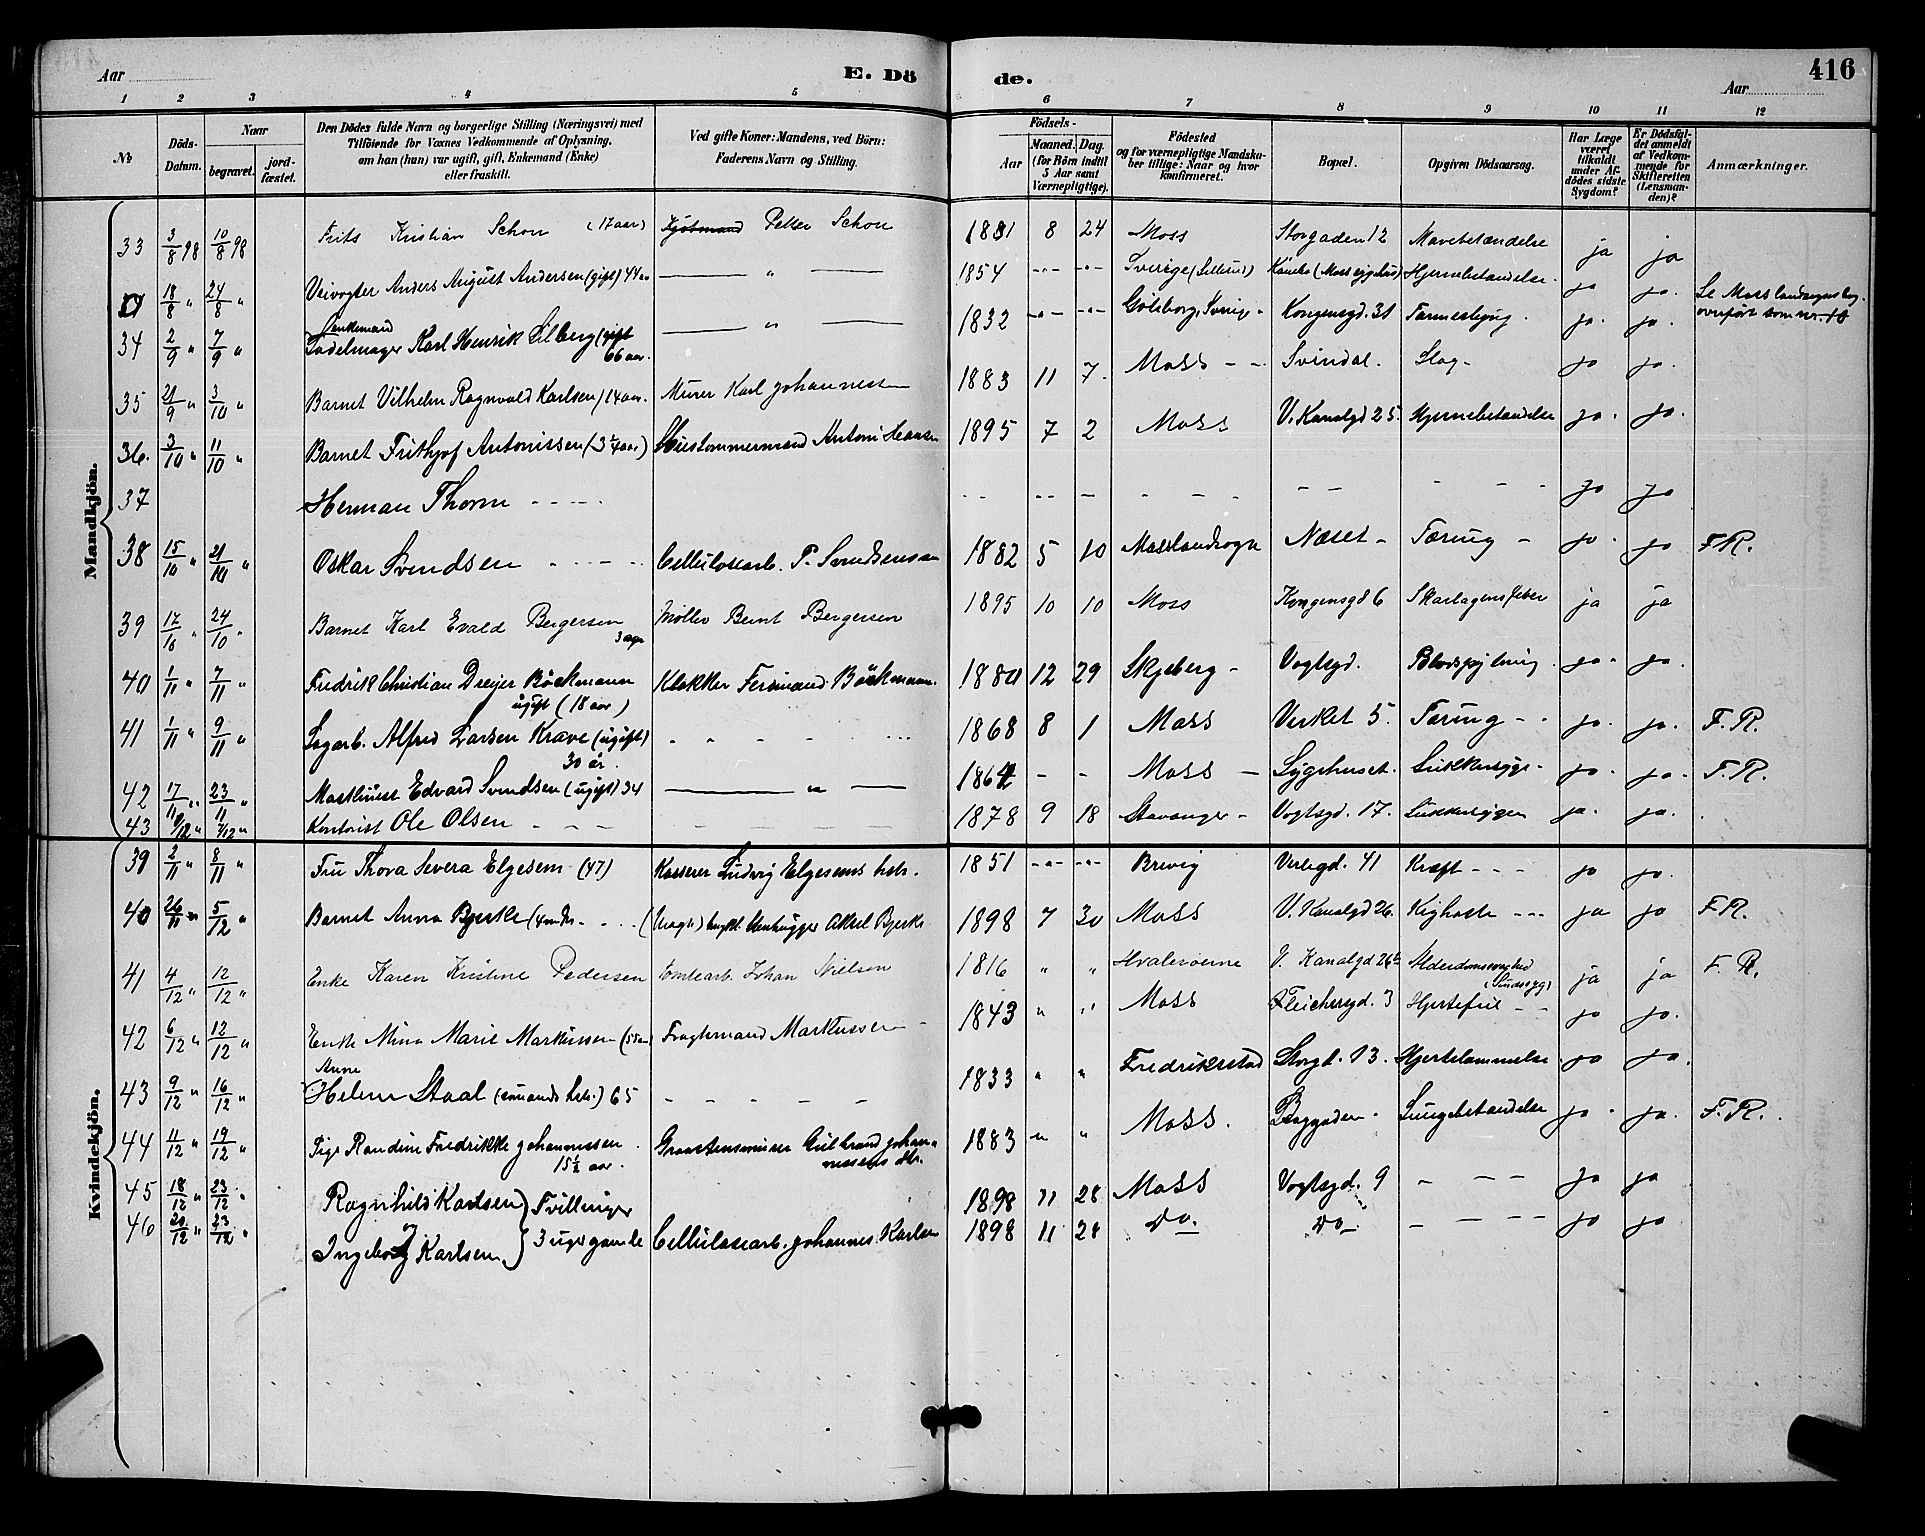 Aar
E. Dö
de.
Aar
416
1 2 3 4 5 6 7 8 9 10 11 12
No
Döds-Datum.
Naar
begravet.
jordfæstet.
Den Dödes fulde Navn og borgerlige Stilling (Næringsvei) med
Tilföiende for Voxnes Vedkommende af Oplysning,
om han (hun) var ugift, gift, Enkemand (Enke)
eller fraskilt.
Ved gifte Koner: Mandens, ved Börn:
Faderens Navn og Stilling.
Födsels-
Aar
Maaned. Dag.
(for Börn indtil
5 Aar samt
Værnepligtige).
Födested
og for værnepligtige Mandskaber tillige: Naar og hvor
konfirmeret.
Bopæl.
Opgiven Dödsaarsag.
Har Læge
været
tilkaldt
under Afdödes sidste
Sygdom?
Er Dödsfaldet anmeldt
af Vedkommende for
Skifteretten
(Lensmanden)?
Anmærkninger.
Mandkjön.
33 3/8 98 10/8 98 Frits Kristian Schou (17 aar) Kjøbmand Petter Schou 1881 8 24 Moss Storgaden 12 Mavebetændelse ja ja
18/8 " 24/8 " Veivogter Anders August Andersen (gift) 44 " 1854 -"- -"- Sverige Hjernebetændelse. ja ja.
Enkemand
34 2/9 " 7/9 " Sadelmager Karl Henrik (gift 66 aar. " 1832 -"- -"- Göteborg, Sverig Kongensgd. 31 ja. ja.
35 21/9 " 3/10 " Barnet Vilhelm Ragnvald Karlsen 14 aar. Murer Karl Johannessen 1883 11 7. Moss Svindal. Slag ja ja.
36. 3/10 " 11/10 " Barnet Frithjof Antonissen Hustømmermand Antoni Hansen 1895 7 2 Moss V. Kanalgd 25. Hjernebetændelse ja. ja.
37 Herman Thorm ja ja
38 15/10 " 21/10 " Oskar Svendsen Cellulosearb. P. Svendsens søn 1882 5 10 Moss landsogn Næset - Tæring - ja. ja F.R.
39 17/10 " 24/10 " Barnet Karl Evald Bergersen 3 aar Møller Bernt Bergersen 1895 10 10 Moss Kongensgd 6 Skarlagensfeber ja ja
40 1/11 " 7/11 " Fredrik Christian Dreyer Böckmann ugift (18 aar) Klokker Ferdinand Böckmann. 1880 12 29 Skjeberg - Vogtsgd. Blodspytning ja. ja.
41 1/11 " 9/11 " Sagarb. Alfred Larsen Krave (ugift) 30 år. 1868 8 1 Moss Verket 5. Tæring - ja. ja. F.R.
42 17/11 " 23/11 " Edvard Svendsen (ugift) 34 " 1864 - - Moss - Sygehuset. Sukkersyge - ja. ja. F.R.
43 /12 " /12 " Kontorist Ole Olsen 1878 9 18 Stavanger - Vogtsgd. 17. Sukkersygen ja. ja.
Kvindekjön.
39 2/11 " 8/11 " Fru Thora Severa Elgesem (47) Kasserer Ludvig Elgesems hstr. 1851 -"- -"- Brevig Verlegd. 41 Kræft - - - ja ja.
40 26/11 " 5/12 " Barnet Anna Bjerke (4 mdr. (uægte) Stenhugger Aksel Bjerke 1898 7 30 Moss V. Kanalgd 26. Kighoste - - - ja ja F.R.
41 4/12 " 12/12 " Enke Karen Kristine Pedersen Tomtearb Johan Nielsen 1816 " " Hvaløerne V. Kanalgd 26b Alderdomssvaghed (Sindssyg) ja ja F.R.
42 6/12 " 12/12 " Enke Mina Marie Markussen (55 aar) Fragtemand Markussen 1843 " " Moss Fleichersgd. 3 Hjertefeil - - ja ja.
Anne
43 9/12 " 16/12 " Helene Staal (sømands hstr.) 65 1833 " " Fredriksstad Storgd. 13. Hjertelammelse. ja ja.
44 11/12 " 19/12 " Pige Randine Fredrikke Johannessen 15½ aar. Graastensmurer Gulbrand Johannessens dtr. 1883 " " Moss. Baggaden. Lungebetændelse ja. ja. F.R.
45 18/12 " 23/12 " Ragnhild Karlsen } Tvillinger 1898 11 28 Moss Vogtsgd. 9 - - - ja ja
og
46 20/12 " 23/12 " Ingeborg Karlsen } 3 uger gamle Cellulosearb. Johannes Karlsen 1898 11 28 Do. Do - - - - ja ja